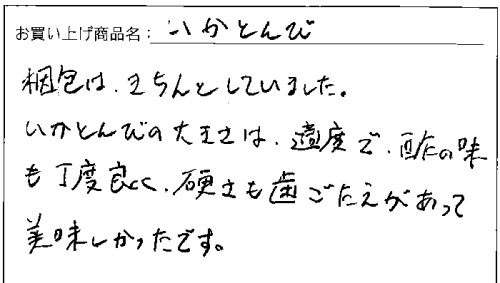 お買い上げ商品名: いかとんび
梱包は、きちんとしていました。
いかとんびの大きさは、適度で、酢の味
も丁度良く、硬さも歯ごたえがあって
美味しかったです。